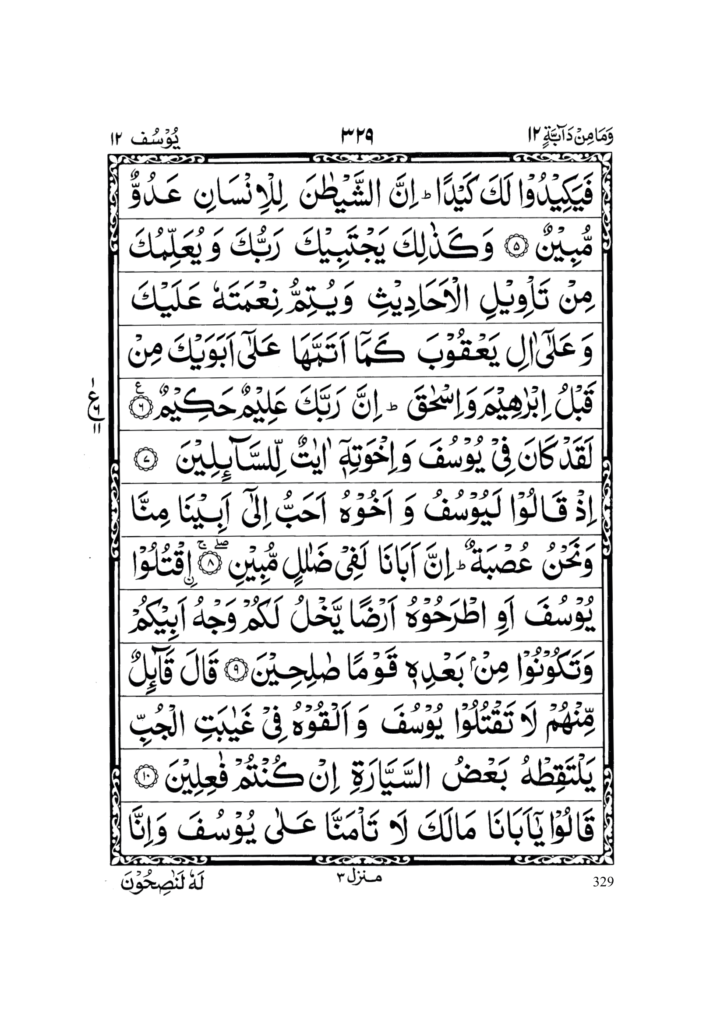 وَمَا مِنْ دَآبَّةٍ ١٢ ٣٢٩ يُوْسُف ١٢
فَيَكِيْدُوْا لَكَ كَيْدًا ؕ اِنَّ الشَّيْطٰنَ لِلْاِنْسَانِ عَدُوٌّ
مُّبِيْنٌ ۝۵ وَكَذٰلِكَ يَجْتَبِيْكَ رَبُّكَ وَيُعَلِّمُكَ
مِنْ تَاْوِيْلِ الْاَحَادِيْثِ وَيُتِمُّ نِعْمَتَهٗ عَلَيْكَ
وَعَلٰۤى اٰلِ يَعْقُوْبَ كَمَاۤ اَتَمَّهَا عَلٰۤى اَبَوَيْكَ مِنْ
قَبْلُ اِبْرٰهِيْمَ وَاِسْحٰقَ ؕ اِنَّ رَبَّكَ عَلِيْمٌ حَكِيْمٌ ۝۶ ع
١ ع ٦ ١١
لَقَدْ كَانَ فِيْ يُوْسُفَ وَاِخْوَتِهٖۤ اٰيٰتٌ لِّلسَّآئِلِيْنَ ۝۷
اِذْ قَالُوْا لَيُوْسُفُ وَاَخُوْهُ اَحَبُّ اِلٰۤى اَبِيْنَا مِنَّا
وَنَحْنُ عُصْبَةٌ ؕ اِنَّ اَبَانَا لَفِيْ ضَلٰلٍ مُّبِيْنِ ۝۸ۖۚ اۨقْتُلُوْا
يُوْسُفَ اَوِ اطْرَحُوْهُ اَرْضًا يَّخْلُ لَكُمْ وَجْهُ اَبِيْكُمْ
وَتَكُوْنُوْا مِنْۢ بَعْدِهٖ قَوْمًا صٰلِحِيْنَ ۝۹ قَالَ قَآئِلٌ
مِّنْهُمْ لَا تَقْتُلُوْا يُوْسُفَ وَاَلْقُوْهُ فِيْ غَيٰبَتِ الْجُبِّ
يَلْتَقِطْهُ بَعْضُ السَّيَّارَةِ اِنْ كُنْتُمْ فٰعِلِيْنَ ۝۱۰
قَالُوْا يٰۤاَبَانَا مَالَكَ لَا تَاْمَنَّا عَلٰى يُوْسُفَ وَاِنَّا
329 منزل ٣ لَهٗ لَنٰصِحُوْنَ